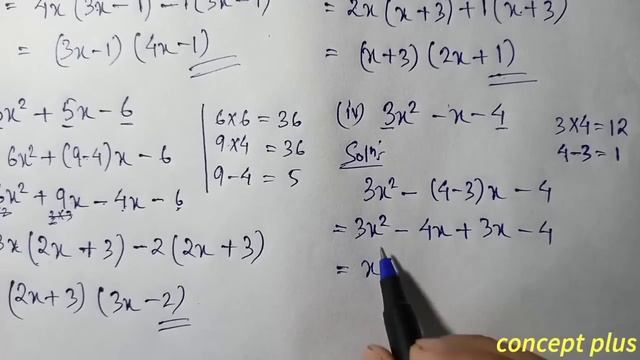 = 4x (3x-1) -1(3x-1)
= (3x-1) (4x-1)
6x² + 5x - 6
6x² + (9-4)x - 6
6x² + 9x - 4x - 6
3x (2x+3) -2 (2x+3)
(2x+3) (3x-2)
6×6 = 36
9×4 = 36
9-4 = 5
= 2x (x+3) +1 (x+3)
= (x+3) (2x+1)
(iv) 3x² - x - 4
3×4 = 12
4-3 = 1
Soln:
3x² - (4-3)x - 4
= 3x² - 4x + 3x - 4
= x
concept plus